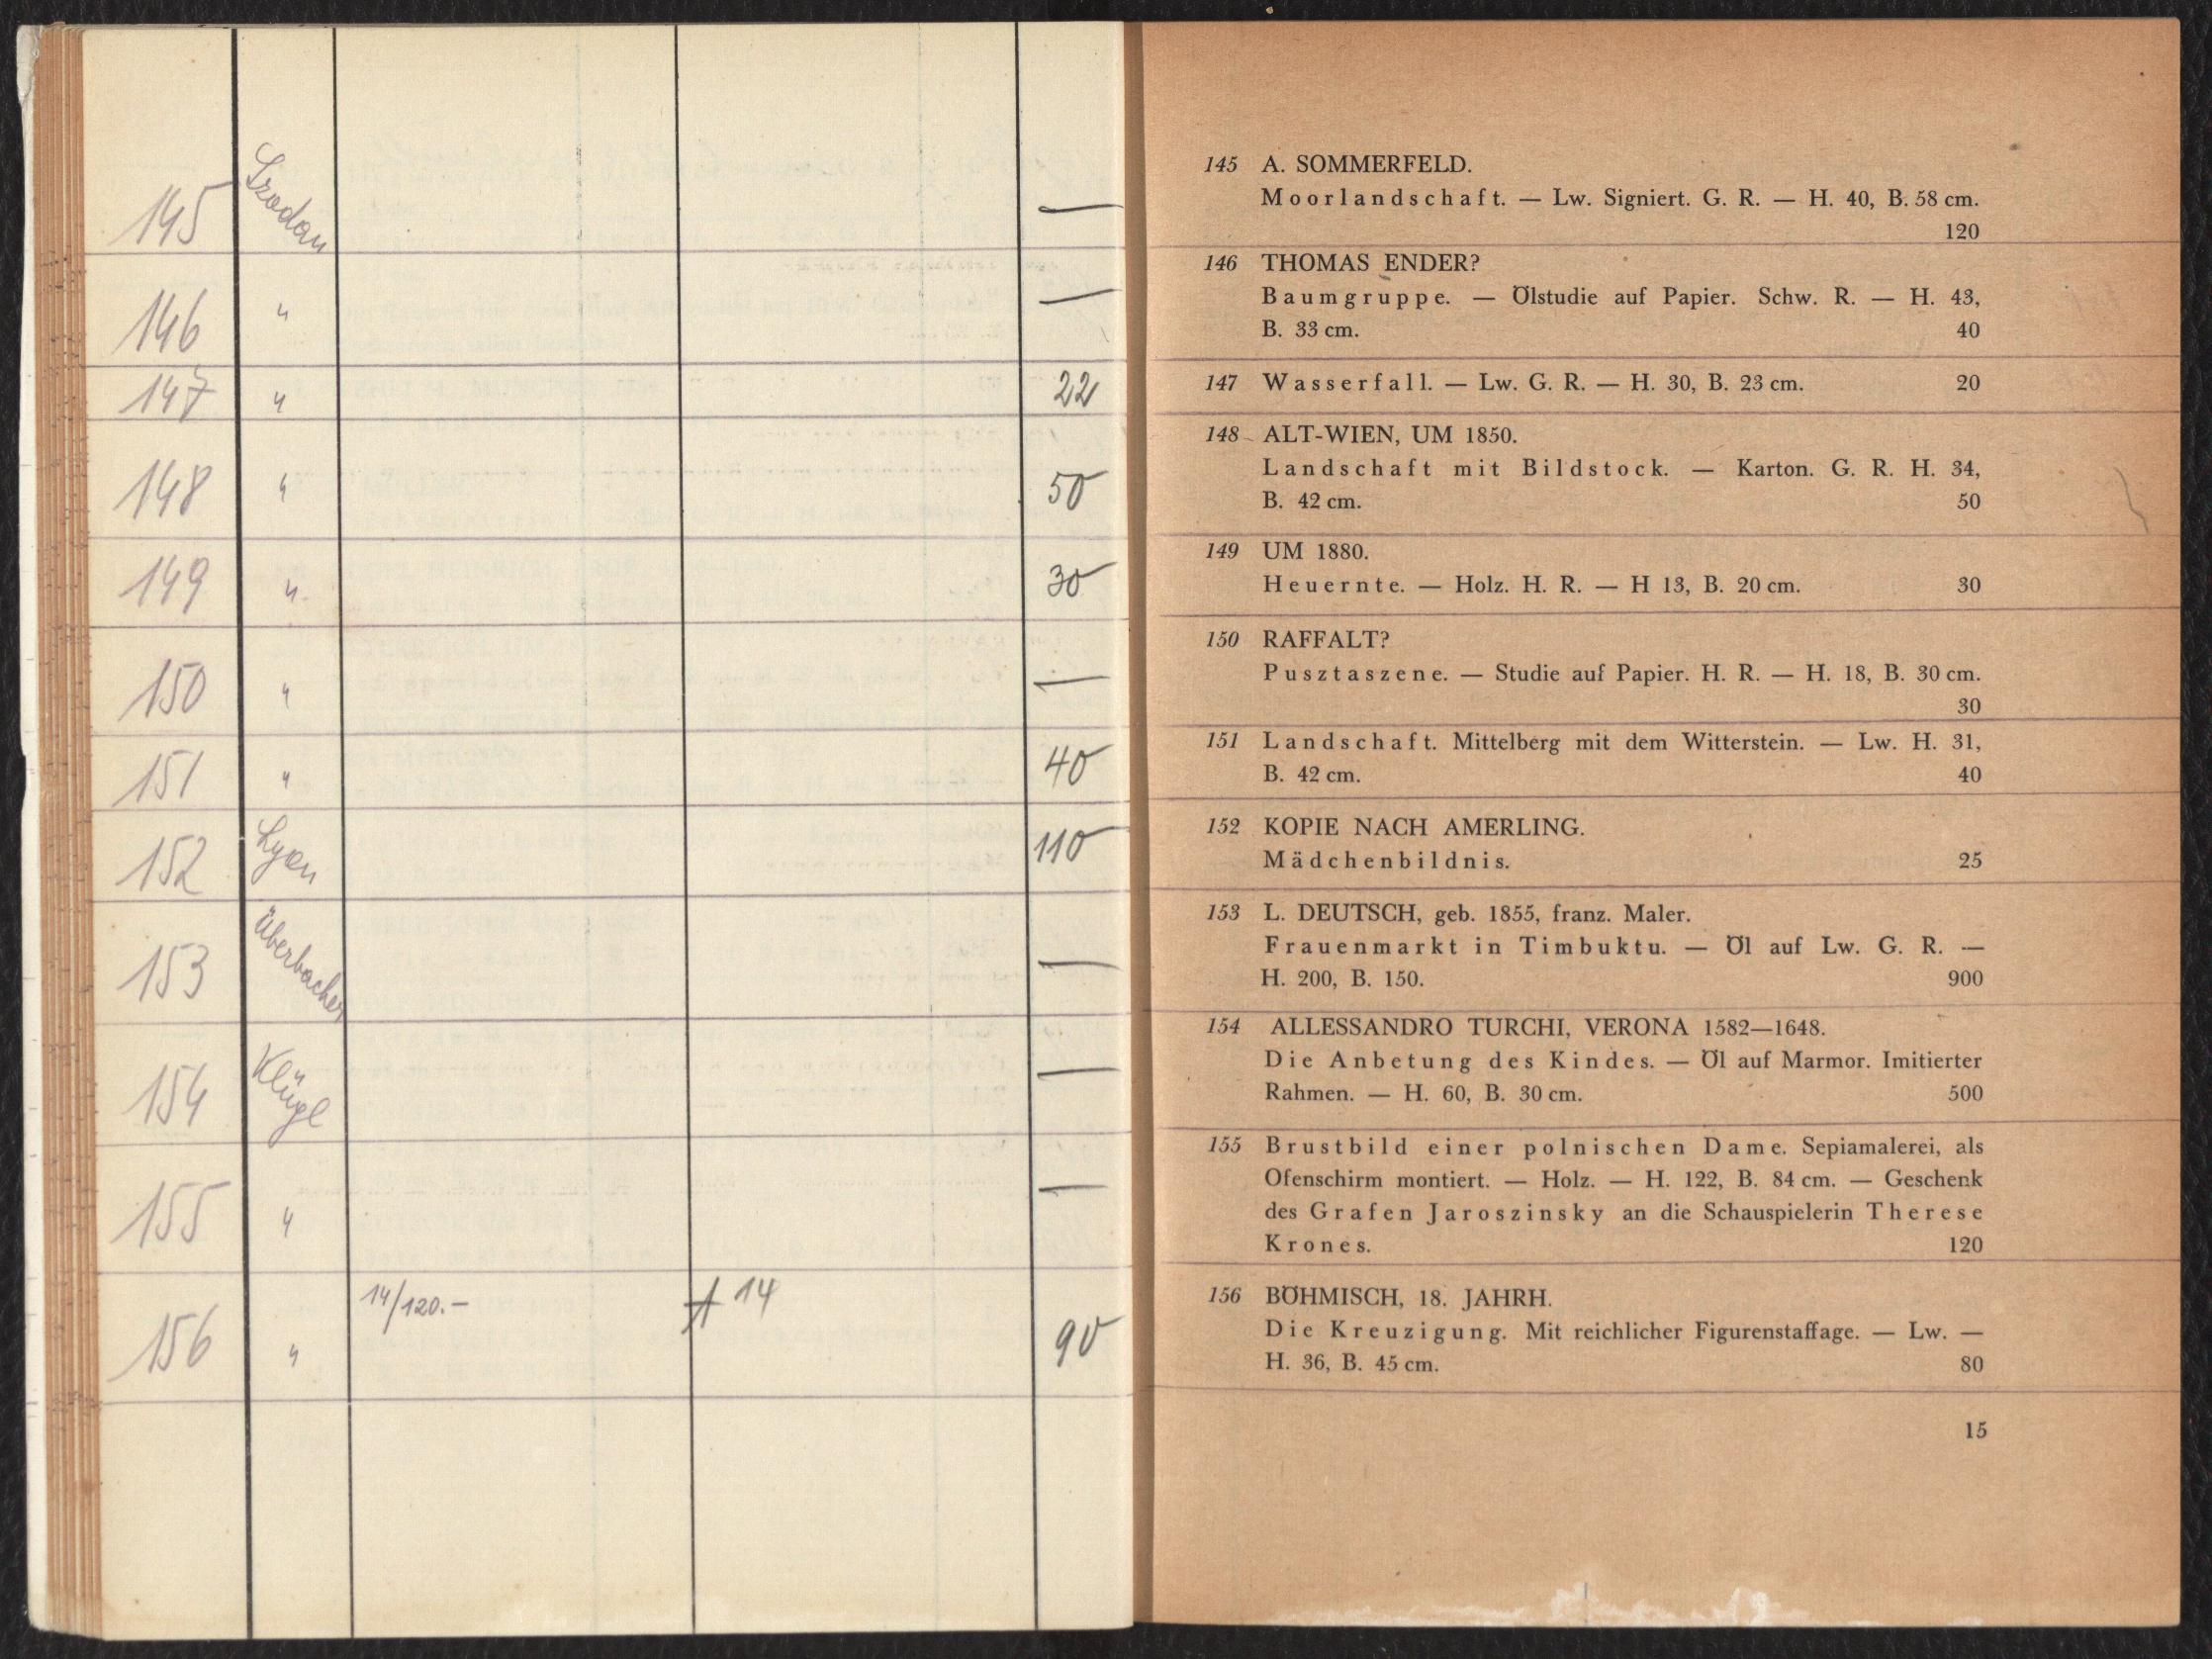 145 Szodan —
146 " —
147 " 22
148 " 50
149 " 30
150 " —
151 " 40
152 Lyon 110
153 Überbacher —
154 Klügl —
155 " —
14/120.- A 14
156 " 90
145 A. SOMMERFELD.
Moorlandschaft. — Lw. Signiert. G. R. — H. 40, B. 58 cm.
120
146 THOMAS ENDER?
Baumgruppe. — Ölstudie auf Papier. Schw. R. — H. 43,
B. 33 cm. 40
147 Wasserfall. — Lw. G. R. — H. 30, B. 23 cm. 20
148 ALT-WIEN, UM 1850.
Landschaft mit Bildstock. — Karton. G. R. H. 34,
B. 42 cm. 50
149 UM 1880.
Heuernte. — Holz. H. R. — H 13, B. 20 cm. 30
150 RAFFALT?
Pusztaszene. — Studie auf Papier. H. R. — H. 18, B. 30 cm.
30
151 Landschaft. Mittelberg mit dem Witterstein. — Lw. H. 31,
B. 42 cm. 40
152 KOPIE NACH AMERLING.
Mädchenbildnis. 25
153 L. DEUTSCH, geb. 1855, franz. Maler.
Frauenmarkt in Timbuktu. — Öl auf Lw. G. R. —
H. 200, B. 150. 900
154 ALLESSANDRO TURCHI, VERONA 1582—1648.
Die Anbetung des Kindes. — Öl auf Marmor. Imitierter
Rahmen. — H. 60, B. 30 cm. 500
155 Brustbild einer polnischen Dame. Sepiamalerei, als
Ofenschirm montiert. — Holz. — H. 122, B. 84 cm. — Geschenk
des Grafen Jaroszinsky an die Schauspielerin Therese
Krones. 120
156 BÖHMISCH, 18. JAHRH.
Die Kreuzigung. Mit reichlicher Figurenstaffage. — Lw. —
H. 36, B. 45 cm. 80
15